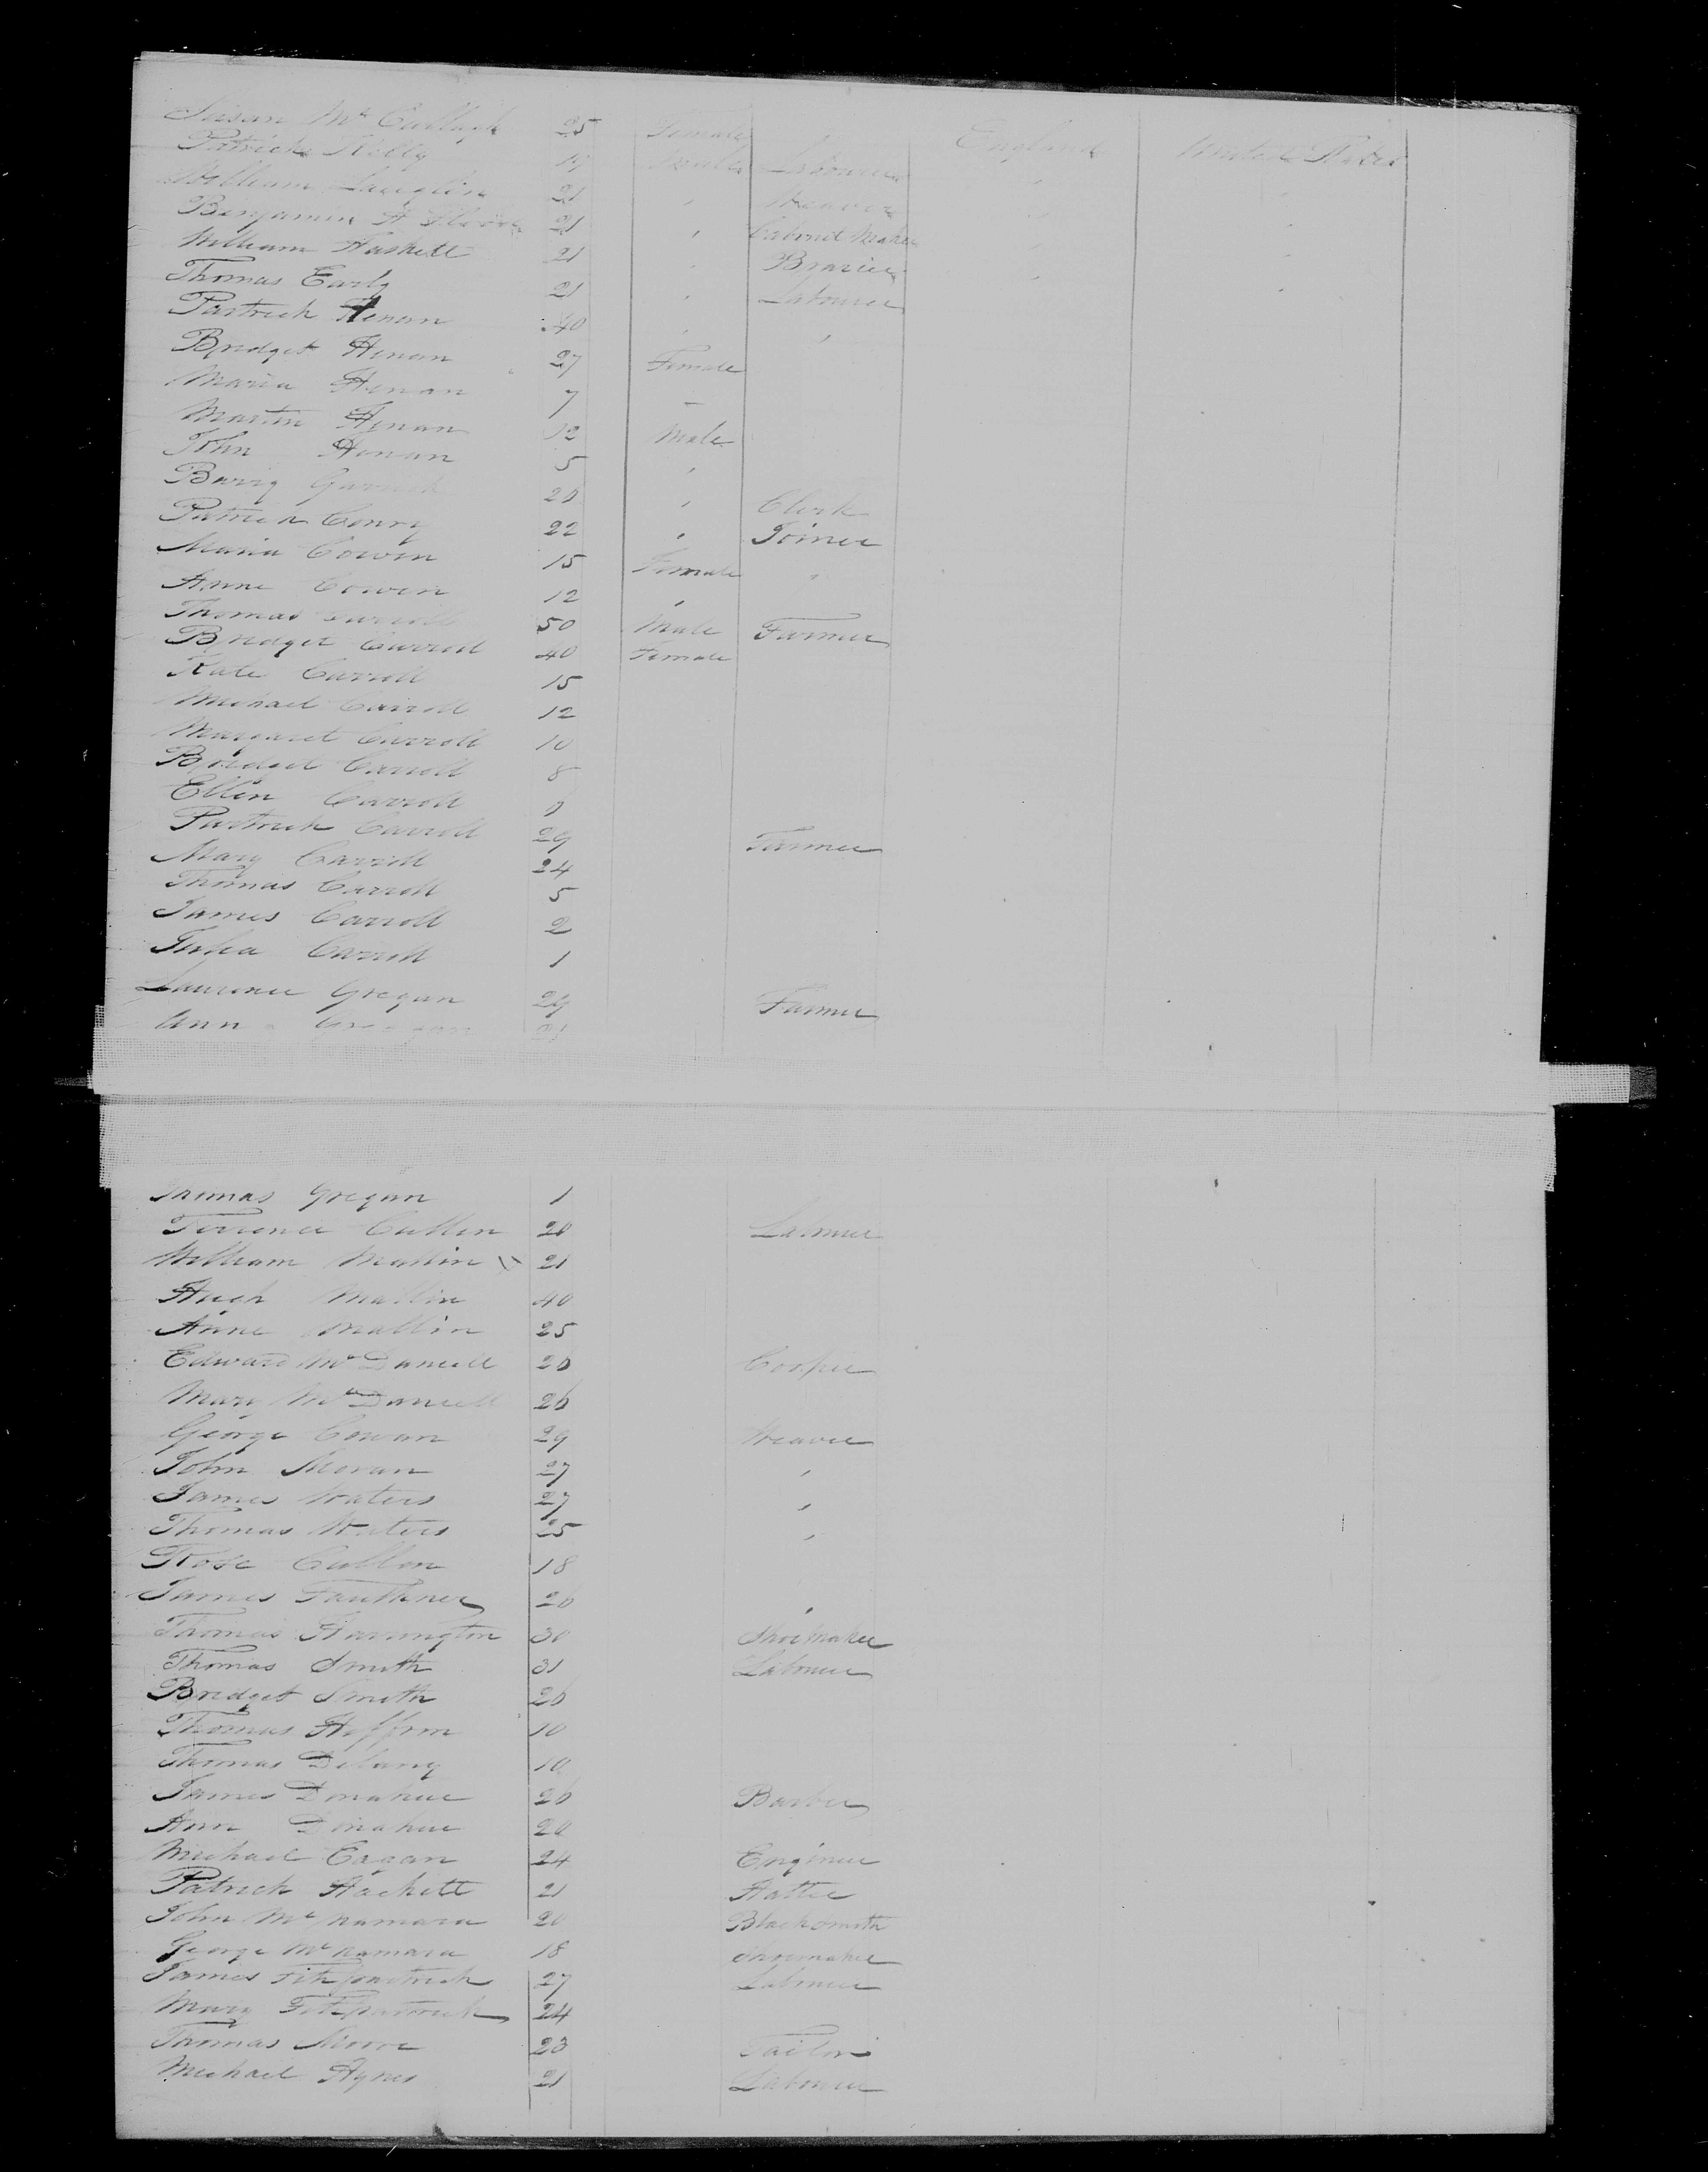 Susan Mc Cullagh 25 Female England United States
Patrick Kelly 19 Male Labourer
William Laughlin 21 " Weaver
Benjamin A 21 " Cabinet Maker
William Haskett 21 " Brazier
Thomas Early 21 " Labourer
Partrick Henan 40 " "
Bridget Henan 27 Female
Maria Henan 7 -
Martin Henan 12 Male
John Henan 5 "
Barry 20 " Clerk
Patrick Conry 22 " Joiner
Maria Cowen 15 Female "
Anne Cowen 12 "
Thomas Carroll 50 Male Farmer
Bridget Carroll 40 Female
Kate Carroll 15
Michael Carroll 12
Margaret Carroll 10
Bridget Carroll 8
Ellen Carroll
Partrick Carroll 29 Farmer
Mary Carroll 24
Thomas Carroll 5
James Carroll 2
Julia Carroll 1
Laurence Gregan 29 Farmer
Ann Gregan 21
Thomas Gregan 1
Terrence Cullen 20 Labourer
William Mallin 21
Hugh Mallin 40
Anne Mallin 25
Edward Mc Daniell 26 Cooper
Mary Mc Daniell 26
George Cowan 29 Weaver
John Moran 27 "
James Waters 27 "
Thomas Waters 25 "
Rose Cullen 18
James Faulkner 26 "
Thomas Harrington 30 Shoemaker
Thomas Smith 31 Labourer
Bridget Smith 26
Thomas Heffron 10
Thomas Delany 10
James Donahue 26 Barber
Ann Donahue 20
Michael Eagan 24 Engineer
Patrick Hackett 21 Hatter
John Mc Namara 20 Blacksmith
George Mc Namara 18 Shoemaker
James Fitzpatrick 27 Labourer
Mary Fitzpatrick 24
Thomas Moore 23 Tailor
Michael Hynes 21 Labourer